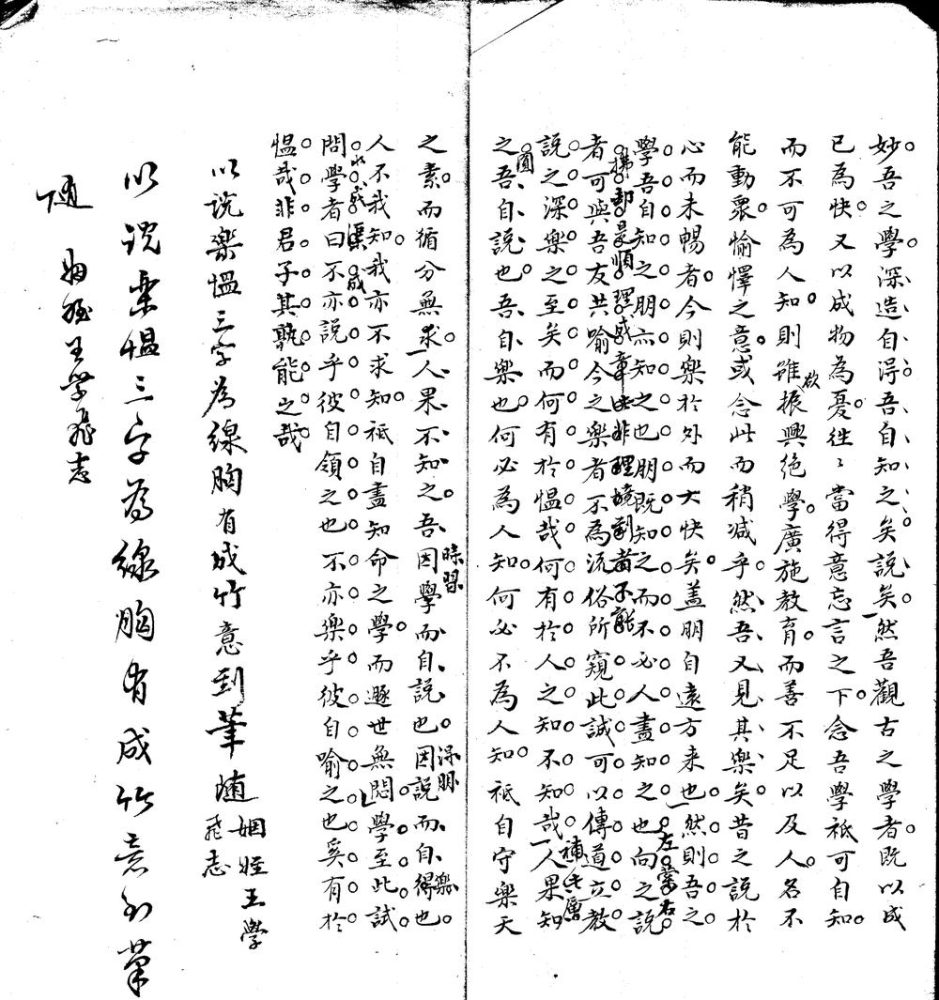 妙吾之學深造自得吾自知之矣說矣然吾觀古之學者既以成
已為快又以成物為憂往々當得意忘言之下念吾學祇可自知
而不可為人知則雖欲振興絕學廣施教育而善不足以及人名不
能動眾愉懌之意或念此而稍減乎然吾又見其樂矣昔之說於
心而未暢者今則樂於外而大快矣蓋朋自遠方来也然則吾之
左宜右
學吾自知之朋亦知之也朋既知之而不必人盡知之也向之說
者可與吾友共喻今之樂者不為流俗所窺此誠可以傳道立教
補出層
說之深樂之至矣而何有於愠哉何有於人之知不知哉人果知
圓
之吾自說也吾自樂也何必為人知何必不為人知祇自守樂天
之素而循分無求人果不知之吾因學而自說也因說而自得也
時習
得朋
樂
人不我知我亦不求知祇自盡知命之學而遯世無悶學至此試
問學者曰不亦說乎彼自領之也不亦樂乎彼自喻之也奚有於
愠哉非君子其孰能之哉
以說樂愠三字為線胸有成竹意到筆随
姻姪王學
飛志
以說樂愠三字為線胸有成竹意到筆
随
姻姪王學飛志